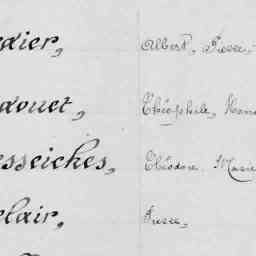 dier, Albert, Pierre,
douet, Théophile,
sseiches, Théodore, Marie
clair, Pierre,